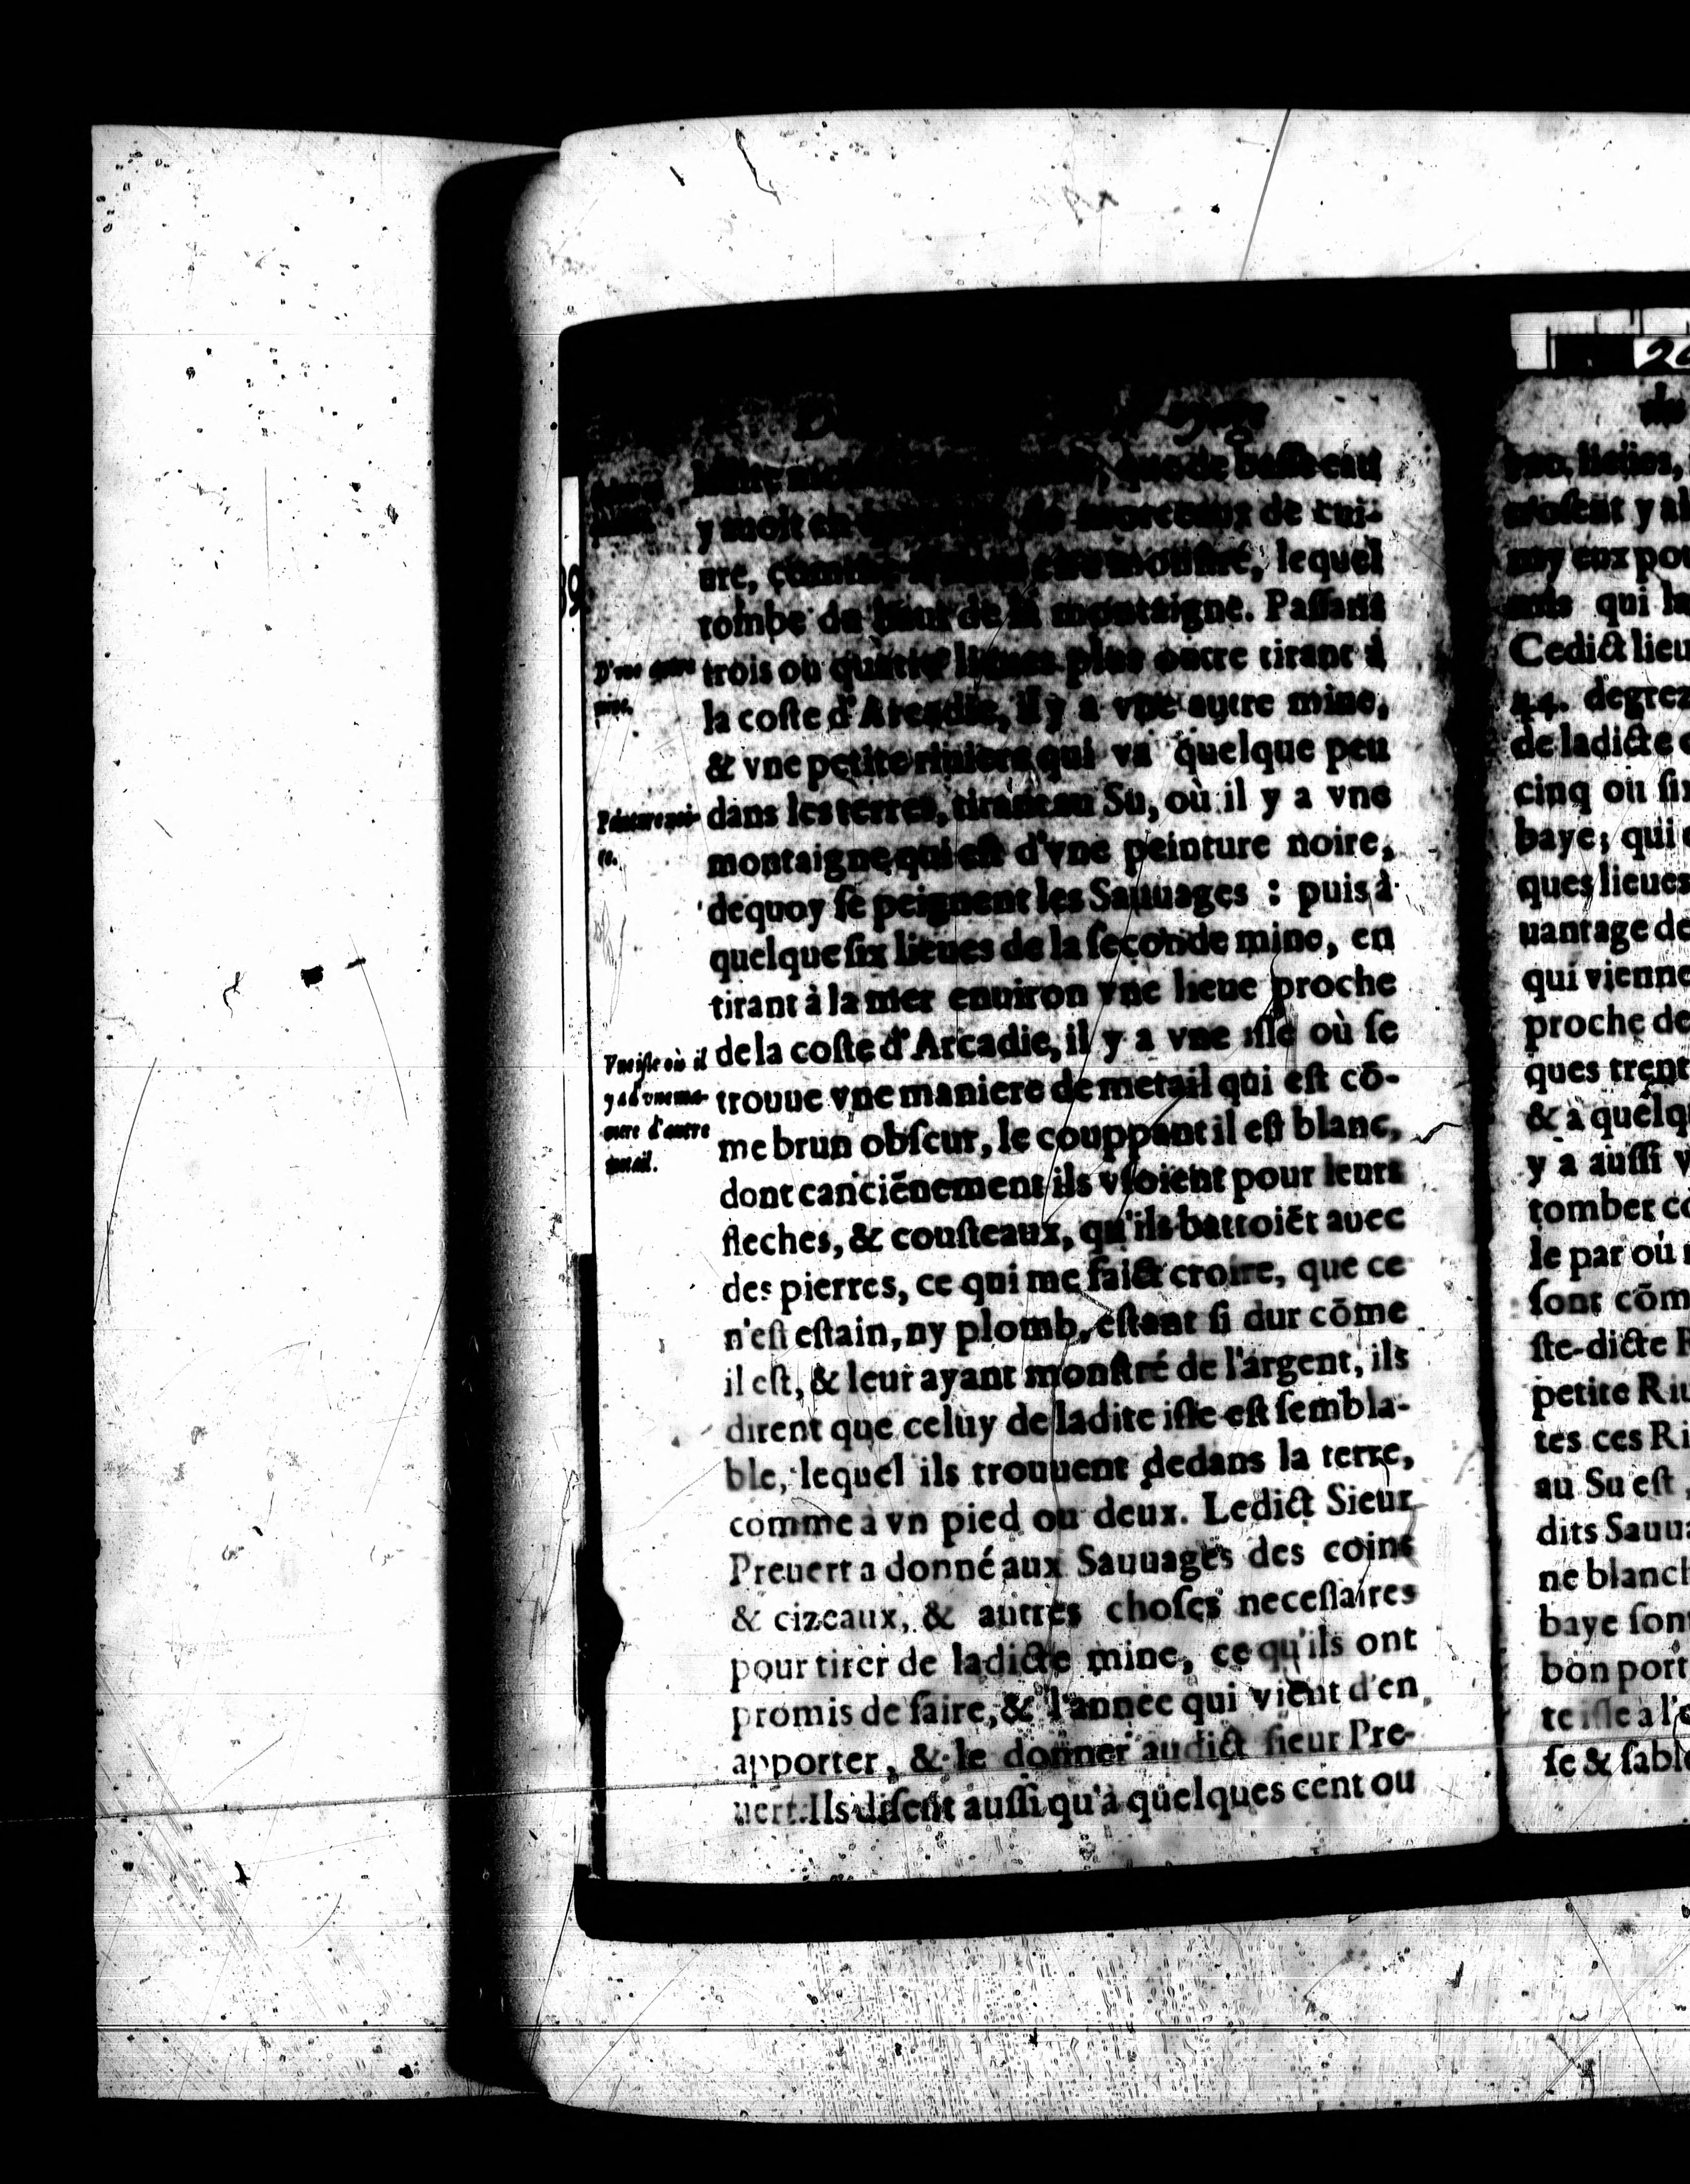 que de basse eau
y auoit en morceaux de cui-
ure, lequel
tombe du haut de la montaigne. Passant
D'vne autre
mine.
trois ou quatre lieues plus outre tirant à
la coste d'Arcadie, il y a vne autre mine,
& vne petite riuiere qui va quelque peu
Peinture noi-
re.
dans les terres, tirant au Su, où il y a vne
montaigne qui est d'vne peinture noire,
dequoy se peignent les Sauuages : puis à
quelque six lieues de la seconde mine, en
tirant à la mer enuiron vne lieue proche
de la coste d'Arcadie, il y a vne isle où se
Vne isle où il
y a d'vne ma-
niere d'autre
metail.
trouue vne maniere de metail qui est cō-
me brun obscur, le couppant il est blanc,
dont canciēnement ils vsoient pour leurs
fleches, & cousteaux, qu'ils battoiēt auec
des pierres, ce qui me faict croire, que ce
n'est estain, ny plomb, estant si dur cōme
il est, & leur ayant monstré de l'argent, ils
dirent que celuy de ladite isle est sembla-
ble, lequel ils trouuent dedans la terre,
comme à vn pied ou deux. Ledict Sieur
Preuert a donné aux Sauuages des coins
& cizeaux, & autres choses necessaires
pour tirer de ladicte mine, ce qu'ils ont
promis de faire, & l'annee qui vient d'en
apporter, & le donner audict sieur Pre-
uert. Ils disent aussi qu'à quelques cent ou
39
20
lieues,
y al
eux pou
qui la
Cedict lieu
44. degrez
de ladicte c
cinq ou six
baye, qui e
ques lieues
uantage de
qui vienne
proche de
ques trent
& à quelqu
y a aussi v
tomber cō
le par où n
sont cōm
ste-dicte R
petite Riu
tes ces Ri
au Su est,
dits Sauua
ne blanch
baye sont
bon port
te isle a l'e
se & sable